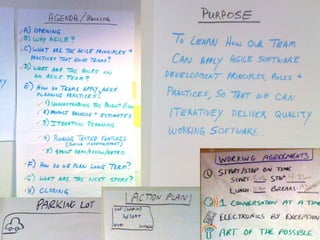 AGENDA / Backlog
A) OPENING
B) WHY AGILE?
C) WHAT ARE THE AGILE PRINCIPLES +
PRACTICES THAT DRIVE TEAMS?
D) WHAT ARE THE ROLES ON
AN AGILE TEAM?
E) HOW DO TEAMS APPLY AGILE
PLANNING PRACTICES?
1) UNDERSTANDING THE
2) PRODUCT BACKLOG + ESTIMATES
3) ITERATION PLANNING
4) RUNNING TESTED FEATURES
5) SPRINT DEMO/RETRO
F) HOW DO WE PLAN LONG TERM?
G) WHAT ARE THE NEXT STEPS?
H) CLOSING
PURPOSE
TO LEARN HOW OUR TEAM
CAN APPLY AGILE SOFTWARE
DEVELOPMENT PRINCIPLES, ROLES +
PRACTICES, SO THAT WE CAN
ITERATIVELY DELIVER QUALITY
WORKING SOFTWARE.
WORKING AGREEMENTS
START/STOP ON TIME
START STOP
LUNCH BREAKS
1 CONVERSATION AT A TIME
ELECTRONICS BY EXCEPTION
ART OF THE POSSIBLE
PARKING LOT
ACTION PLAN
WHAT
WHO WHEN